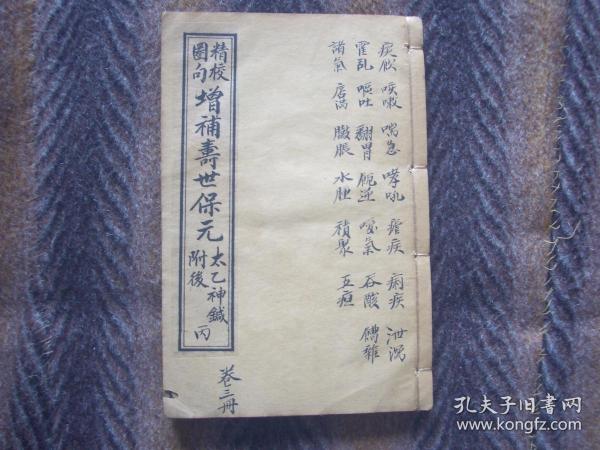 痰飲 咳嗽 喘急 哮吼 瘧疾 痢疾 泄瀉
霍乱 嘔吐 翻胃 呃逆 噯氣 吞酸 嘈雜
諸氣 痞滿 臌脹 水腫 積聚 五疸
精校
圈句
增補壽世保元
太乙神鍼
附後
丙
卷三冊
孔夫子旧书网
www.kongfz.com